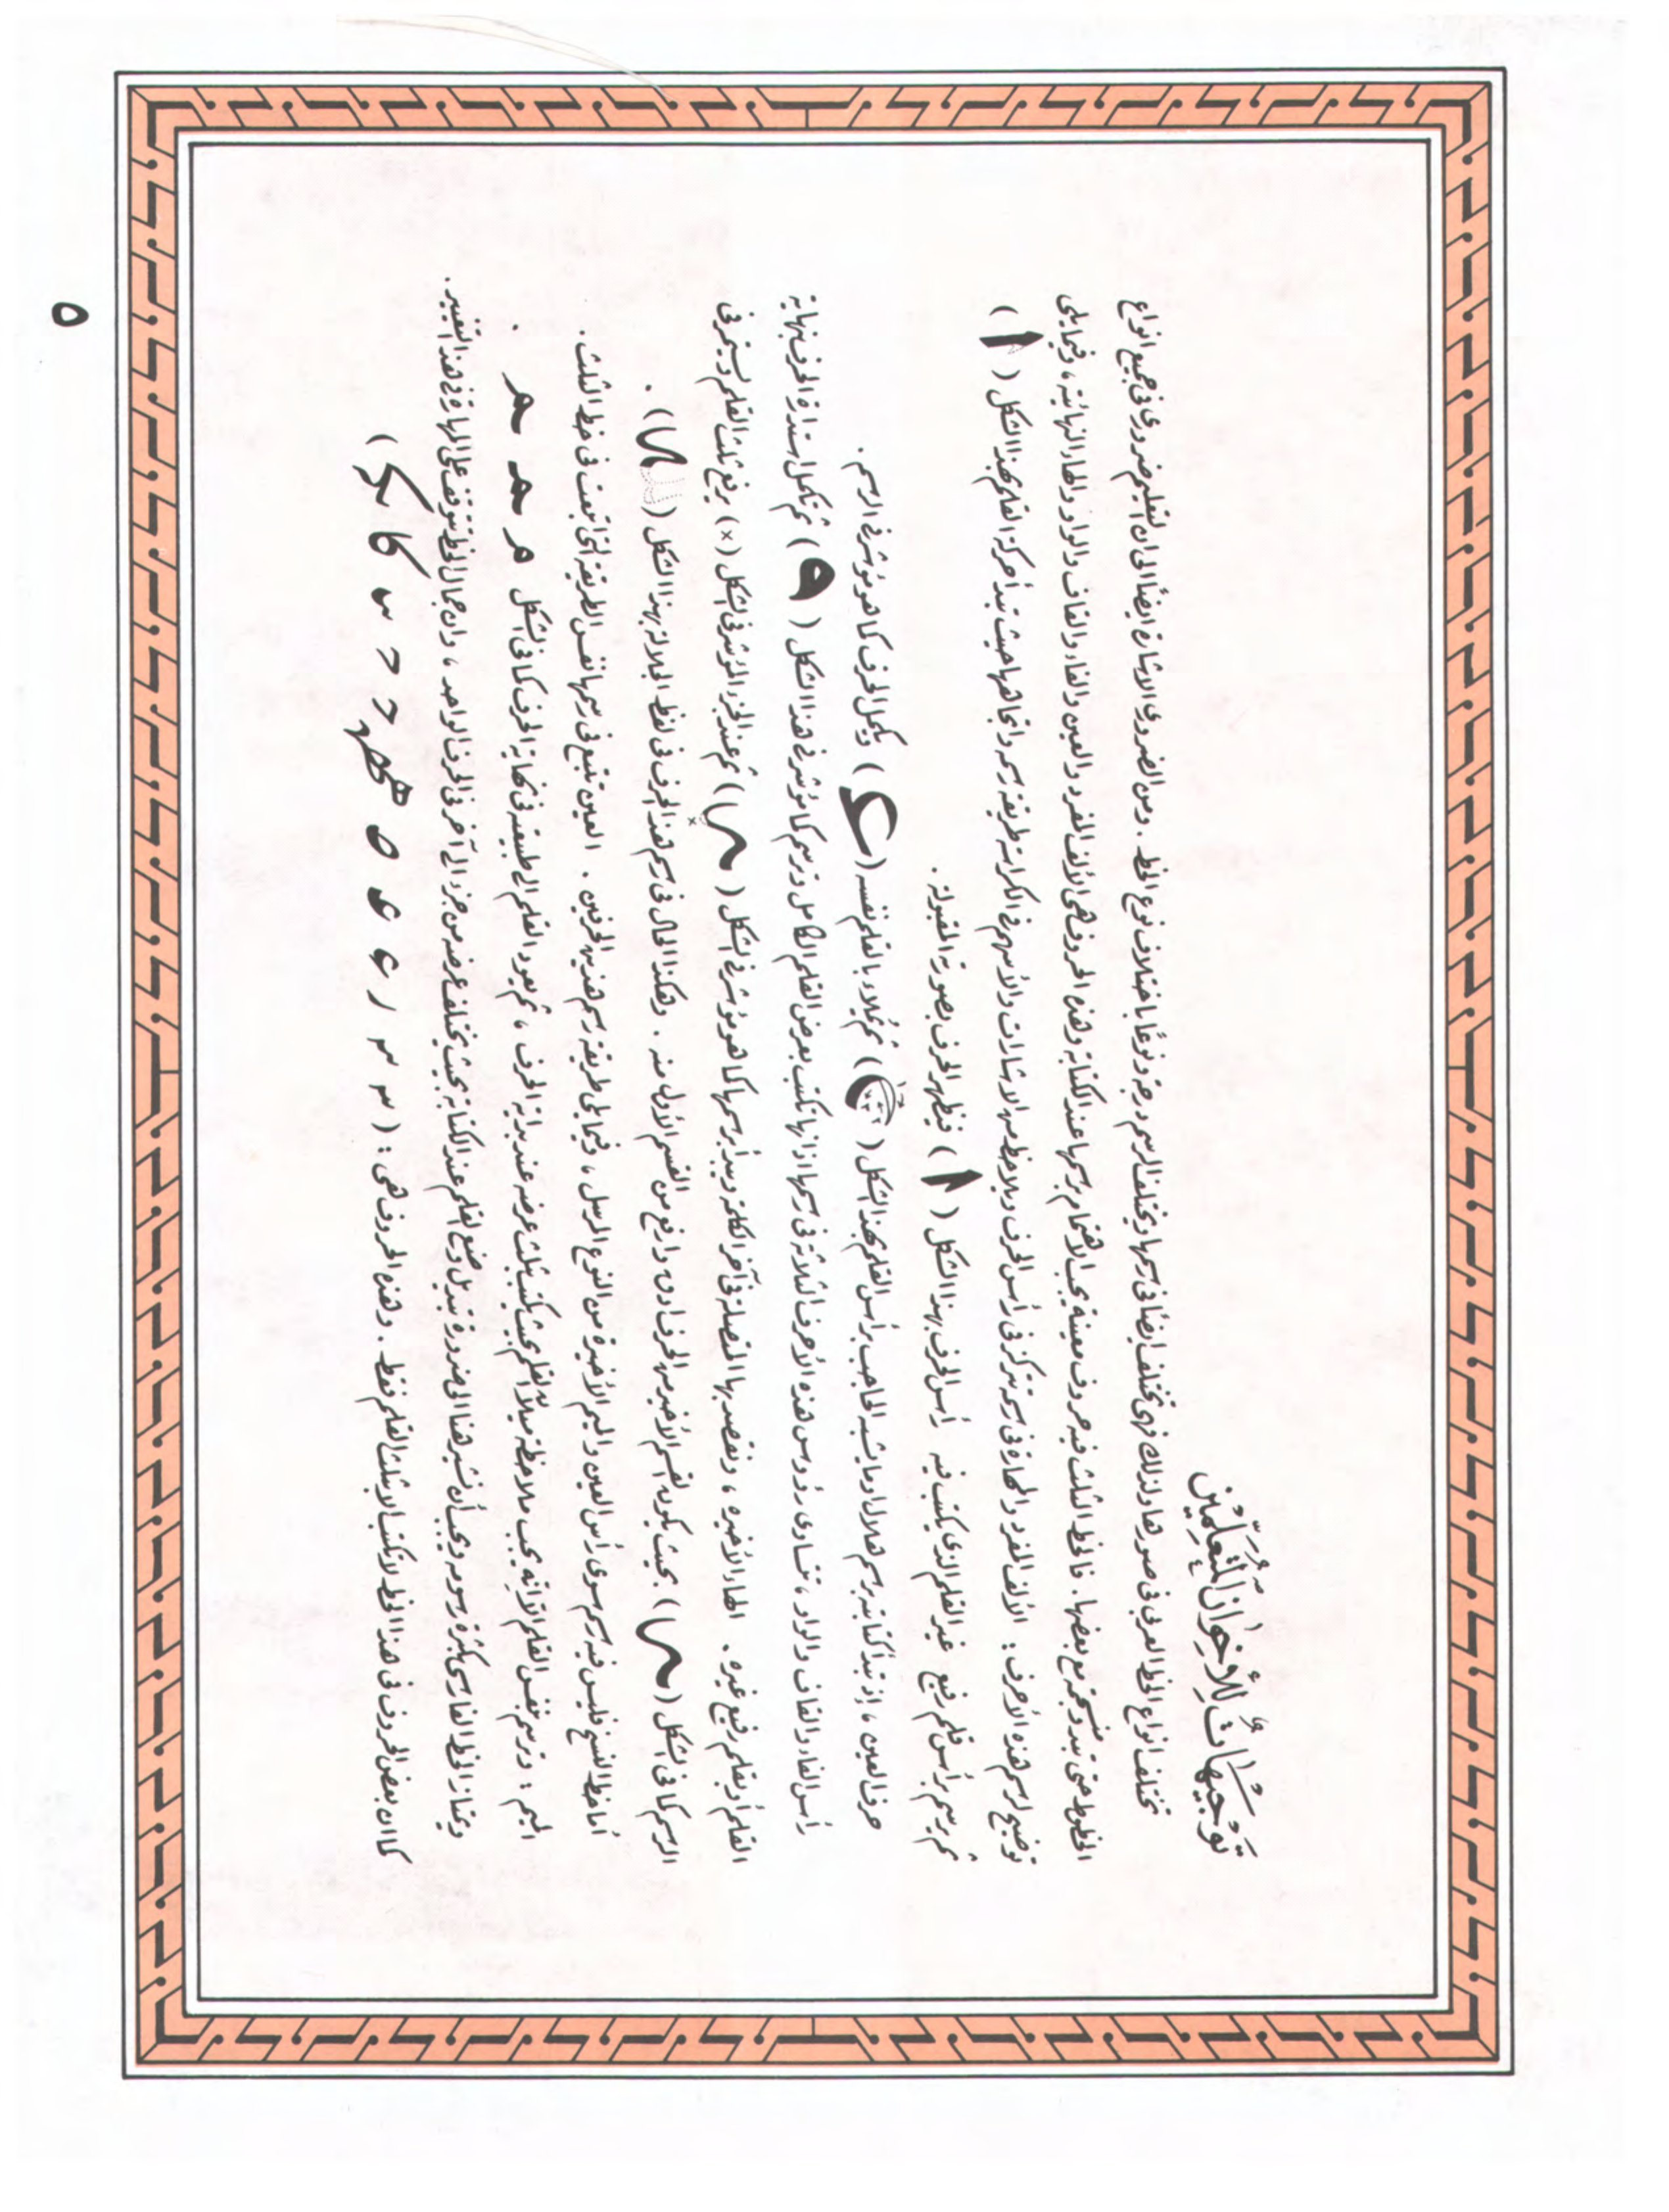 توجيهات للأخوان المتعلمين
تختلف انواع الخط العربي في صورها ولذلك فهي تختلف ايضًا في رسمها ويختلف الرسم درجة ونوعًا باختلاف نوع الخط . ومن الضروري الاشارة ايضًا الى ان التعليم ضروري في جميع انواع
الخطوط حتى تبدو منسجمة مع بعضها . فالخط الثلث فيه حروف معينة يجب الاهتمام برسمها عند الكتابة وهذه الحروف هي الألف المفرد والعين والفاء والقاف والواو والهاء النهائية ، وفيما يلي
توضيح لرسم هذه الأحرف : الألف المفرد والمهارة في رسمه تتركز في رأس الحرف ويلاحظ من الاشارات والأسهم في الكراسة طريقة رسمه واتجاهها حيث تبدأ حركة القلم بهذا الشكل ( ا )
ثم يرسم برأس قلم رفيع غير القلم الذي يكتب فيه رأس الحرف بهذا الشكل ( ا ) فيظهر الحرف بصورته المقبولة .
حرف العين ، إذ تبدأ كتابته برسم هلال او ما يشبه الحاجب برأس القلم بهذا الشكل ( ) ثم يملاء بالقلم نفسه ( ) ويكمل الحرف كما هو مؤشر في الرسم .
رأس الفاء والقاف والواو ، تتساوى رؤوس هذه الأحرف الثلاثة في رسمها اذ انها تكتب بعرض القلم الكامل وترسم كما مؤشر في هذا الشكل ( ) ثم تكمل استدارة الحرف بنهاية
القلم أو بقلم رفيع غيره . الهاء الأخيره ، ونقصد بها المتصلة في آخر الكلمة ويبدأ برسمها كما هو مؤشر في الشكل ( ) ثم عند الجزء المؤشر في الشكل (×) يرفع ثلث القلم ويستمر في
الرسم كما في الشكل ( ) بحيث يكون القسم الأخير من الحرف ادق وارفع من القسم الأول منه . وهكذا الحال في رسم هذا الحرف في لفظ الجلالة بهذا الشكل ( ) .
أما خط النسخ فليس فيه رسم سوى رأس العين والميم الأخيرة من النوع المرسل ، وفيما يلي طريقة رسم هذين الحرفين . العين تتبع في رسمها نفس الطريقة التي اتبعت في خط الثلث .
الميم : وترسم بنفس القلم الا انه يجب ملاحظة ميلان القلم بحيث يكتب بثلث عرضه عند بداية الحرف ، ثم يعود القلم الى طبيعته في نهاية الحرف كما في الشكل م مـ مـ .
ويمتاز الخط الفارسي بكثرة رسومه ويجب أن نشير هنا الى ضرورة تبديل وضع القلم عند الكتابة بحيث يختلف عرضه من جزء الى آخر في الحرف الواحد ، وان جمال الخط يتوقف على المهارة في هذا التغيير .
كما ان بعض الحروف في هذا الخط لا تكتب الا بثلث القلم فقط . وهذه الحروف هي : (
٥